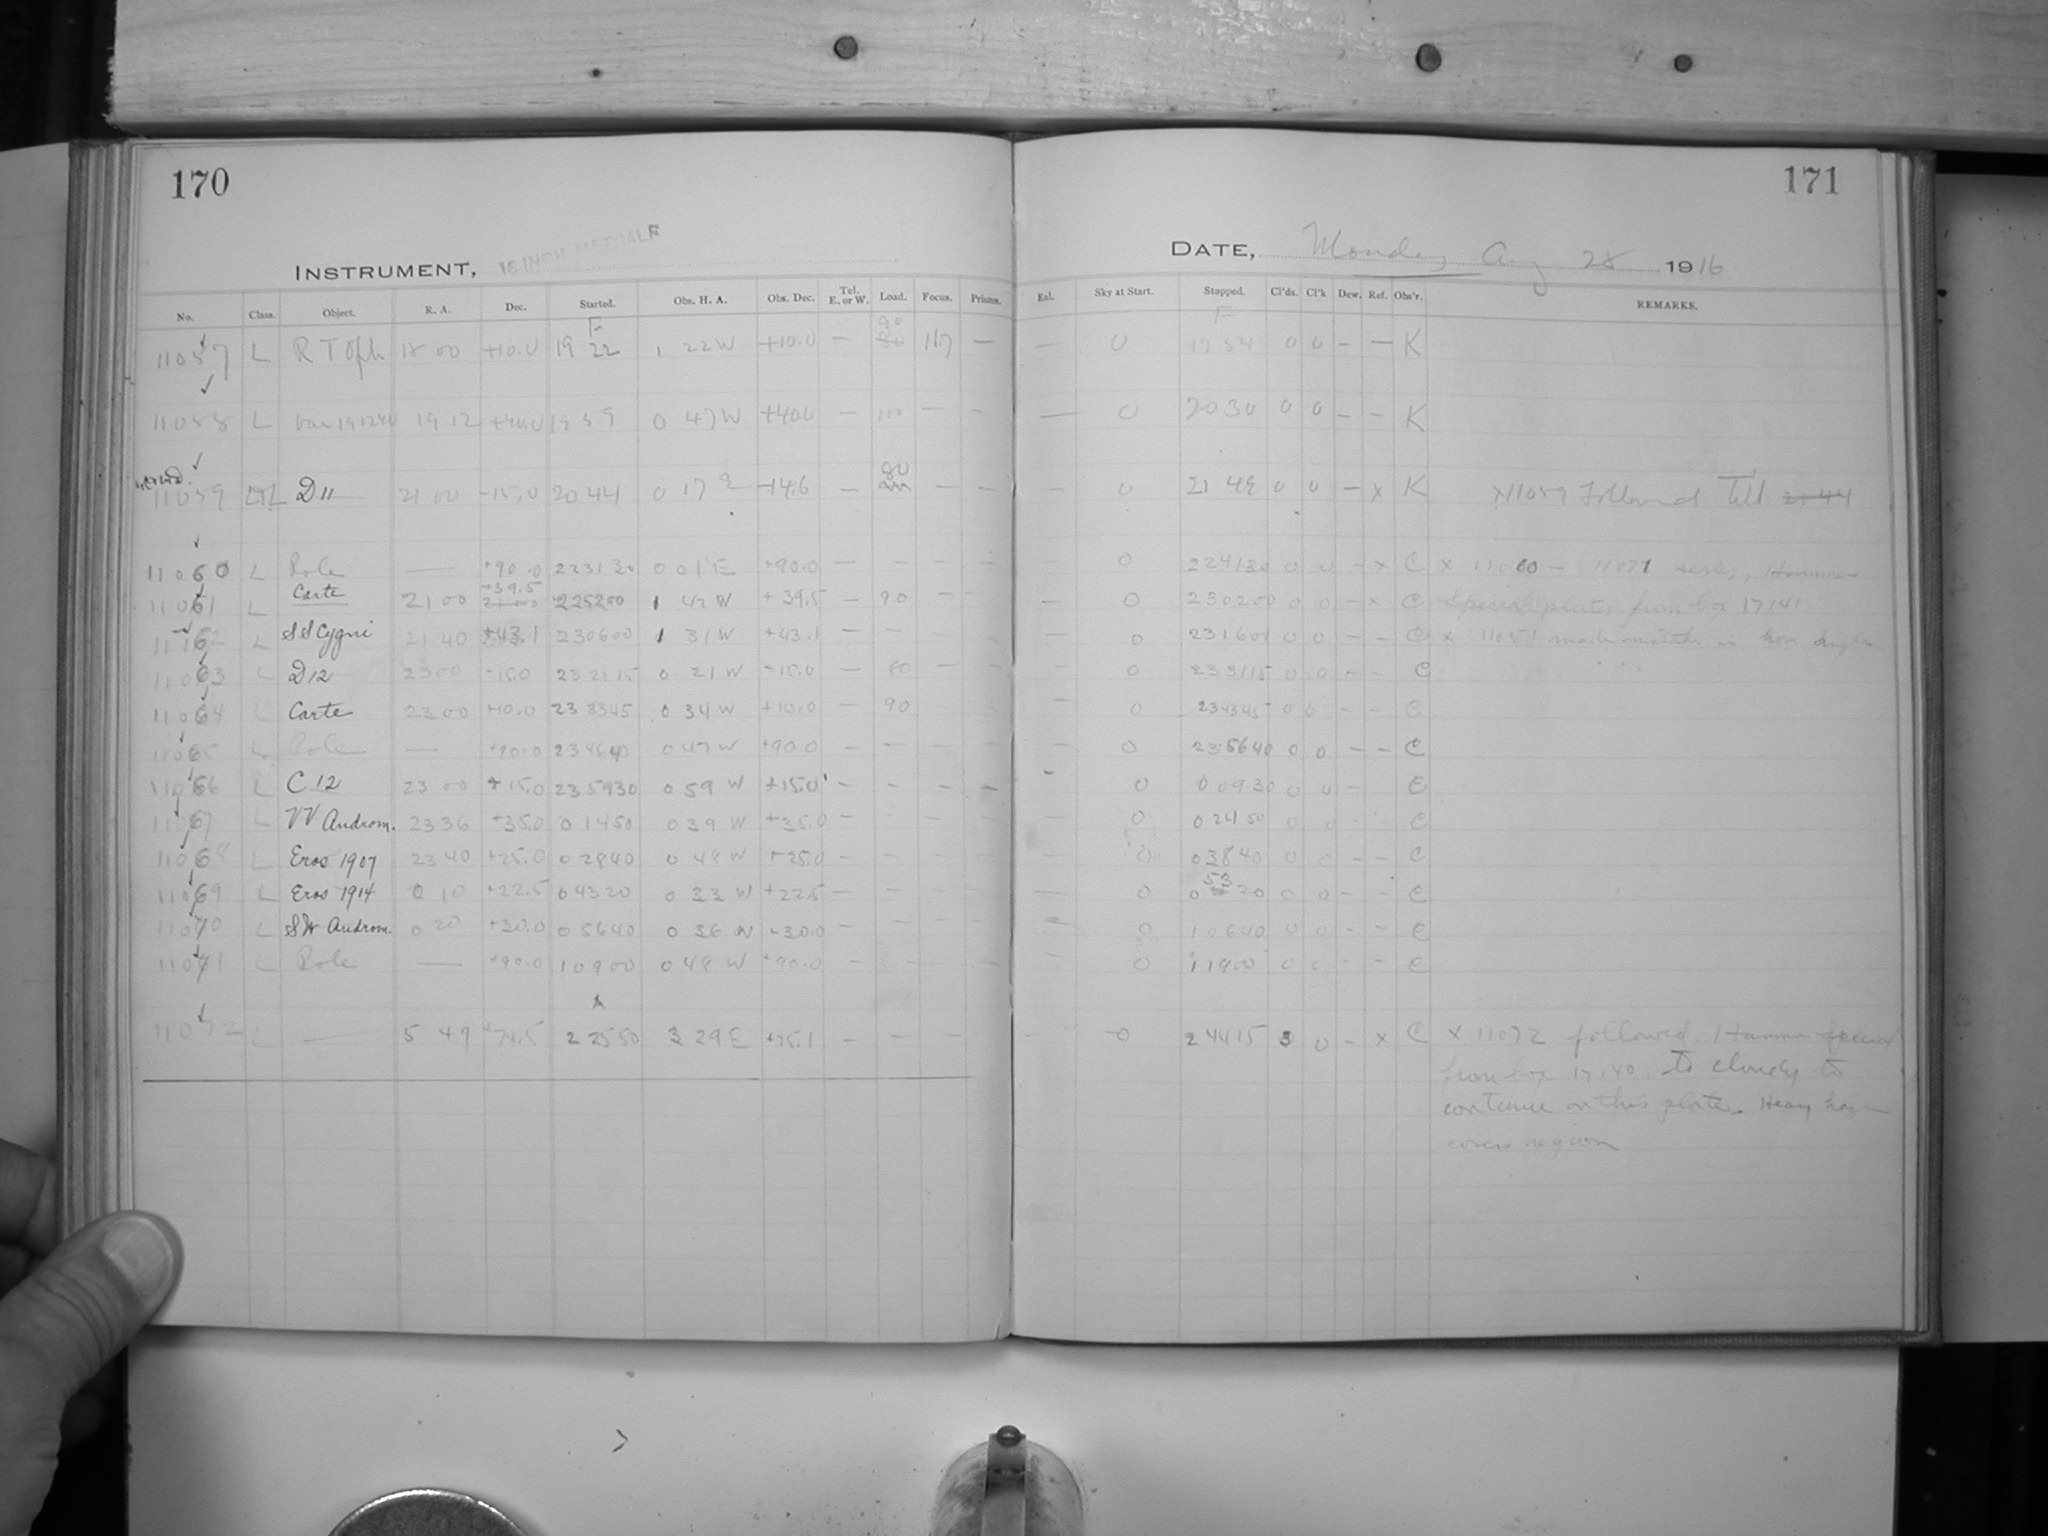 170
171
INSTRUMENT, 16 INCH METCALF
DATE, Monday Aug 28 1916
No. Class. Object. R. A. Dec. Started. Obs. H. A. Obs. Dec. Tel. E. or W. Load. Focus. Prisms. Exl. Sky at Start. Stopped. Cl'ds. Cl'k Dew. Ref. Obs'r. REMARKS.
F F 90
11057 L R T Oph 18 00 +10.0 19 22 1 22 W +10.0 — 80 117 — — 0 19 54 0 0 — — K
11058 L 19 12 +40.0 19 59 0 47 W +40.0 — 100 — — — 0 20 30 0 0 — — K
80
11059 L D11 21 00 -15.0 20 44 0 17 -14.6 — — — — 0 21 48 0 0 — x K x11059 Followed Till 21 44
11060 L Pole — +90.0 22 31 30 0 01 E +90.0 — — — — — 0 22 41 30 0 0 — x C x 11060 — 11071 series, Hammer
+39.5
11061 L Carte 21 00 22 52 00 1 42 W +39.5 — 90 — — — 0 23 02 00 0 0 — x C Special plates from box 17141
11062 L SS Cygni 21 40 +43.1 23 06 00 1 31 W +43.1 — — — — 0 23 16 00 0 0 — — C x 11051 made mistake in hour angle
11063 L D12 23 00 -15.0 23 21 15 0 21 W -15.0 — 80 — — — 0 23 31 15 0 0 — — C
11064 L Carte 23 00 +10.0 23 33 45 0 34 W +10.0 — 90 — — — 0 23 43 45 0 0 — — C
11065 L Pole — +90.0 23 46 40 0 47 W +90.0 — — — — — 0 23 56 40 0 0 — — C
11066 L C 12 23 00 +15.0 23 59 30 0 59 W +15.0 — — — — — 0 0 09 30 0 0 — C
11067 L VV Androm. 23 36 +35.0 0 14 50 0 39 W +35.0 — — — — 0 0 24 50 0 0 — — C
11068 L Eros 1907 23 40 +25.0 0 28 40 0 48 W +25.0 — — — — — 0 0 38 40 0 0 — — C
11069 L Eros 1914 0 10 +22.5 0 43 20 0 33 W +22.5 — — — — — 0 0 53 20 0 0 — — C
11070 L SW Androm. 0 20 +30.0 0 56 40 0 36 W +30.0 — — — — 0 1 06 40 0 0 — — C
11071 L Pole — +90.0 1 09 00 0 48 W +90.0 — — — — 0 1 19 00 0 0 — — C
A
11072 L — 5 49 +74.5 2 25 50 3 29 E +75.1 — — — — 0 2 44 15 3 0 — x C x 11072 followed. Hammer Special
from box 17140. To cloudy to
continue on this plate. Heavy haze
covers region